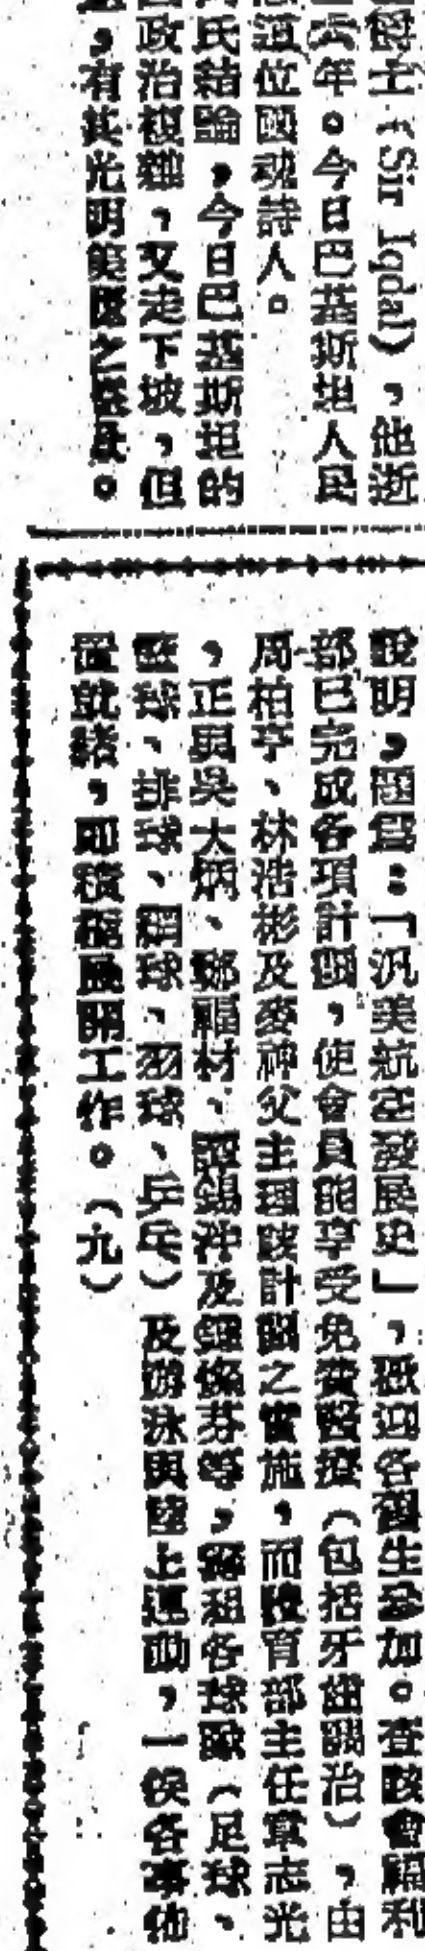 爵士（Sir Iqdal），他逝
六年。今日巴基斯坦人民
這位國魂詩人。
氏結論，今日巴基斯坦的
政治複雜，又走下坡，但
，有其光明之。
說明，題爲：「汎美航空發展史」，歡迎各僑生參加。查該會福利
部已完成各項計劃，使會員能享受免費醫療（包括牙齒調治），由
周柏亭、林浩彬及麥神父主理該計劃之實施，而體育部主任章志光
，正與吳大炳、鄭福材、譚錫沖及鍾佩芬等，籌組各球隊（足球、
籃球、排球、網球、羽球、乒乓）及游泳與陸上運動，一俟各事佈
置就緒，即積極展開工作。（九）